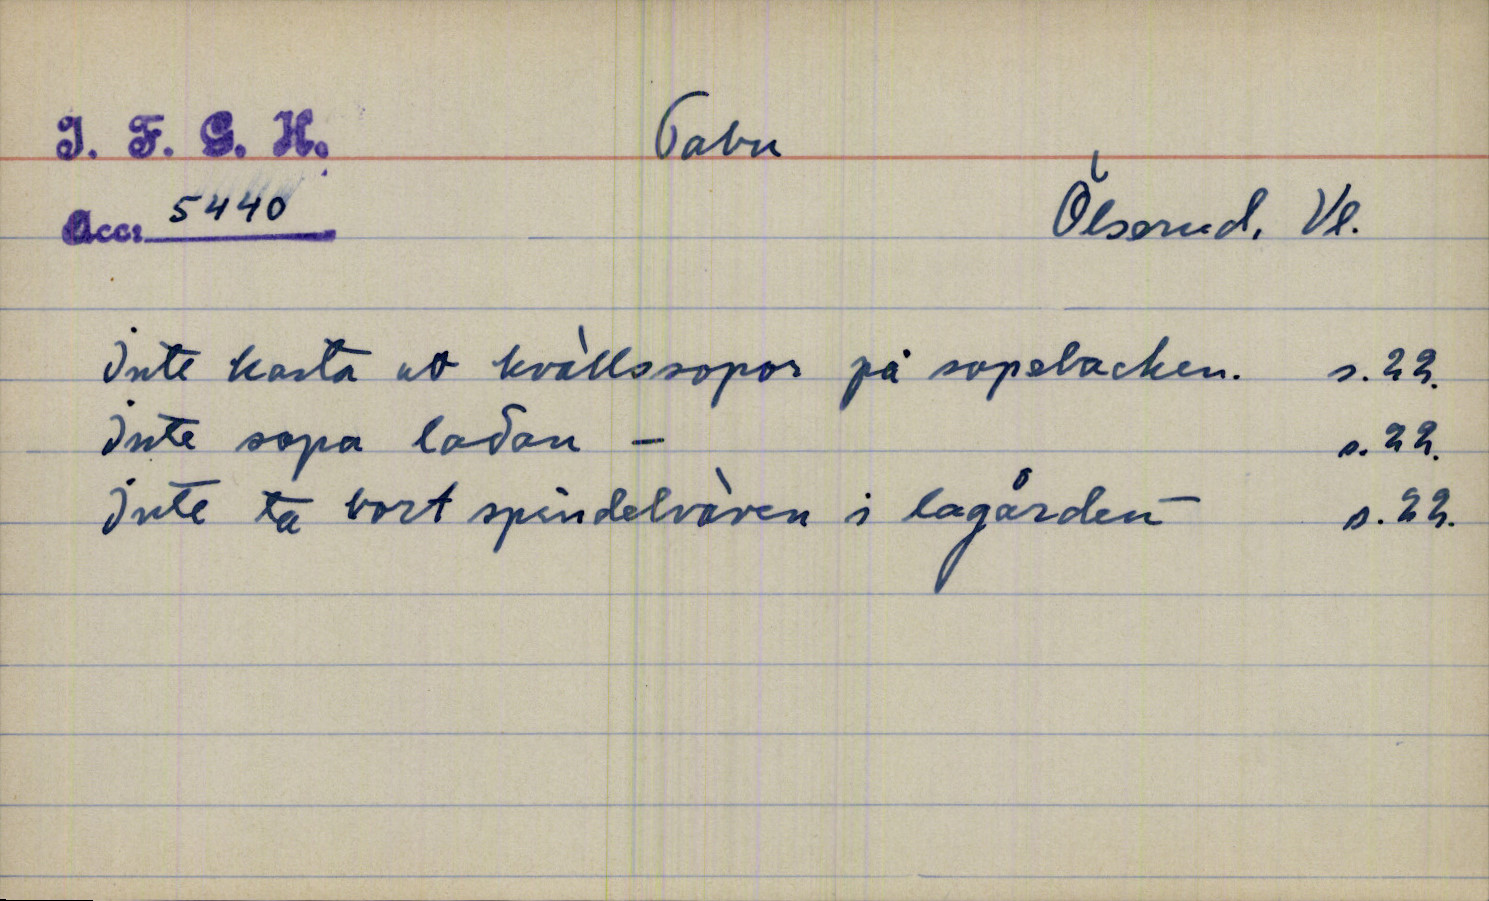 I. F. G. H.
Tabu
Accr 5440
Ölserud, Vl.
Inte kasta ut kvällssopor på sopebacken. s. 22.
Inte sopa ladan – s. 22.
Inte ta bort spindelväven i lagården – s. 22.